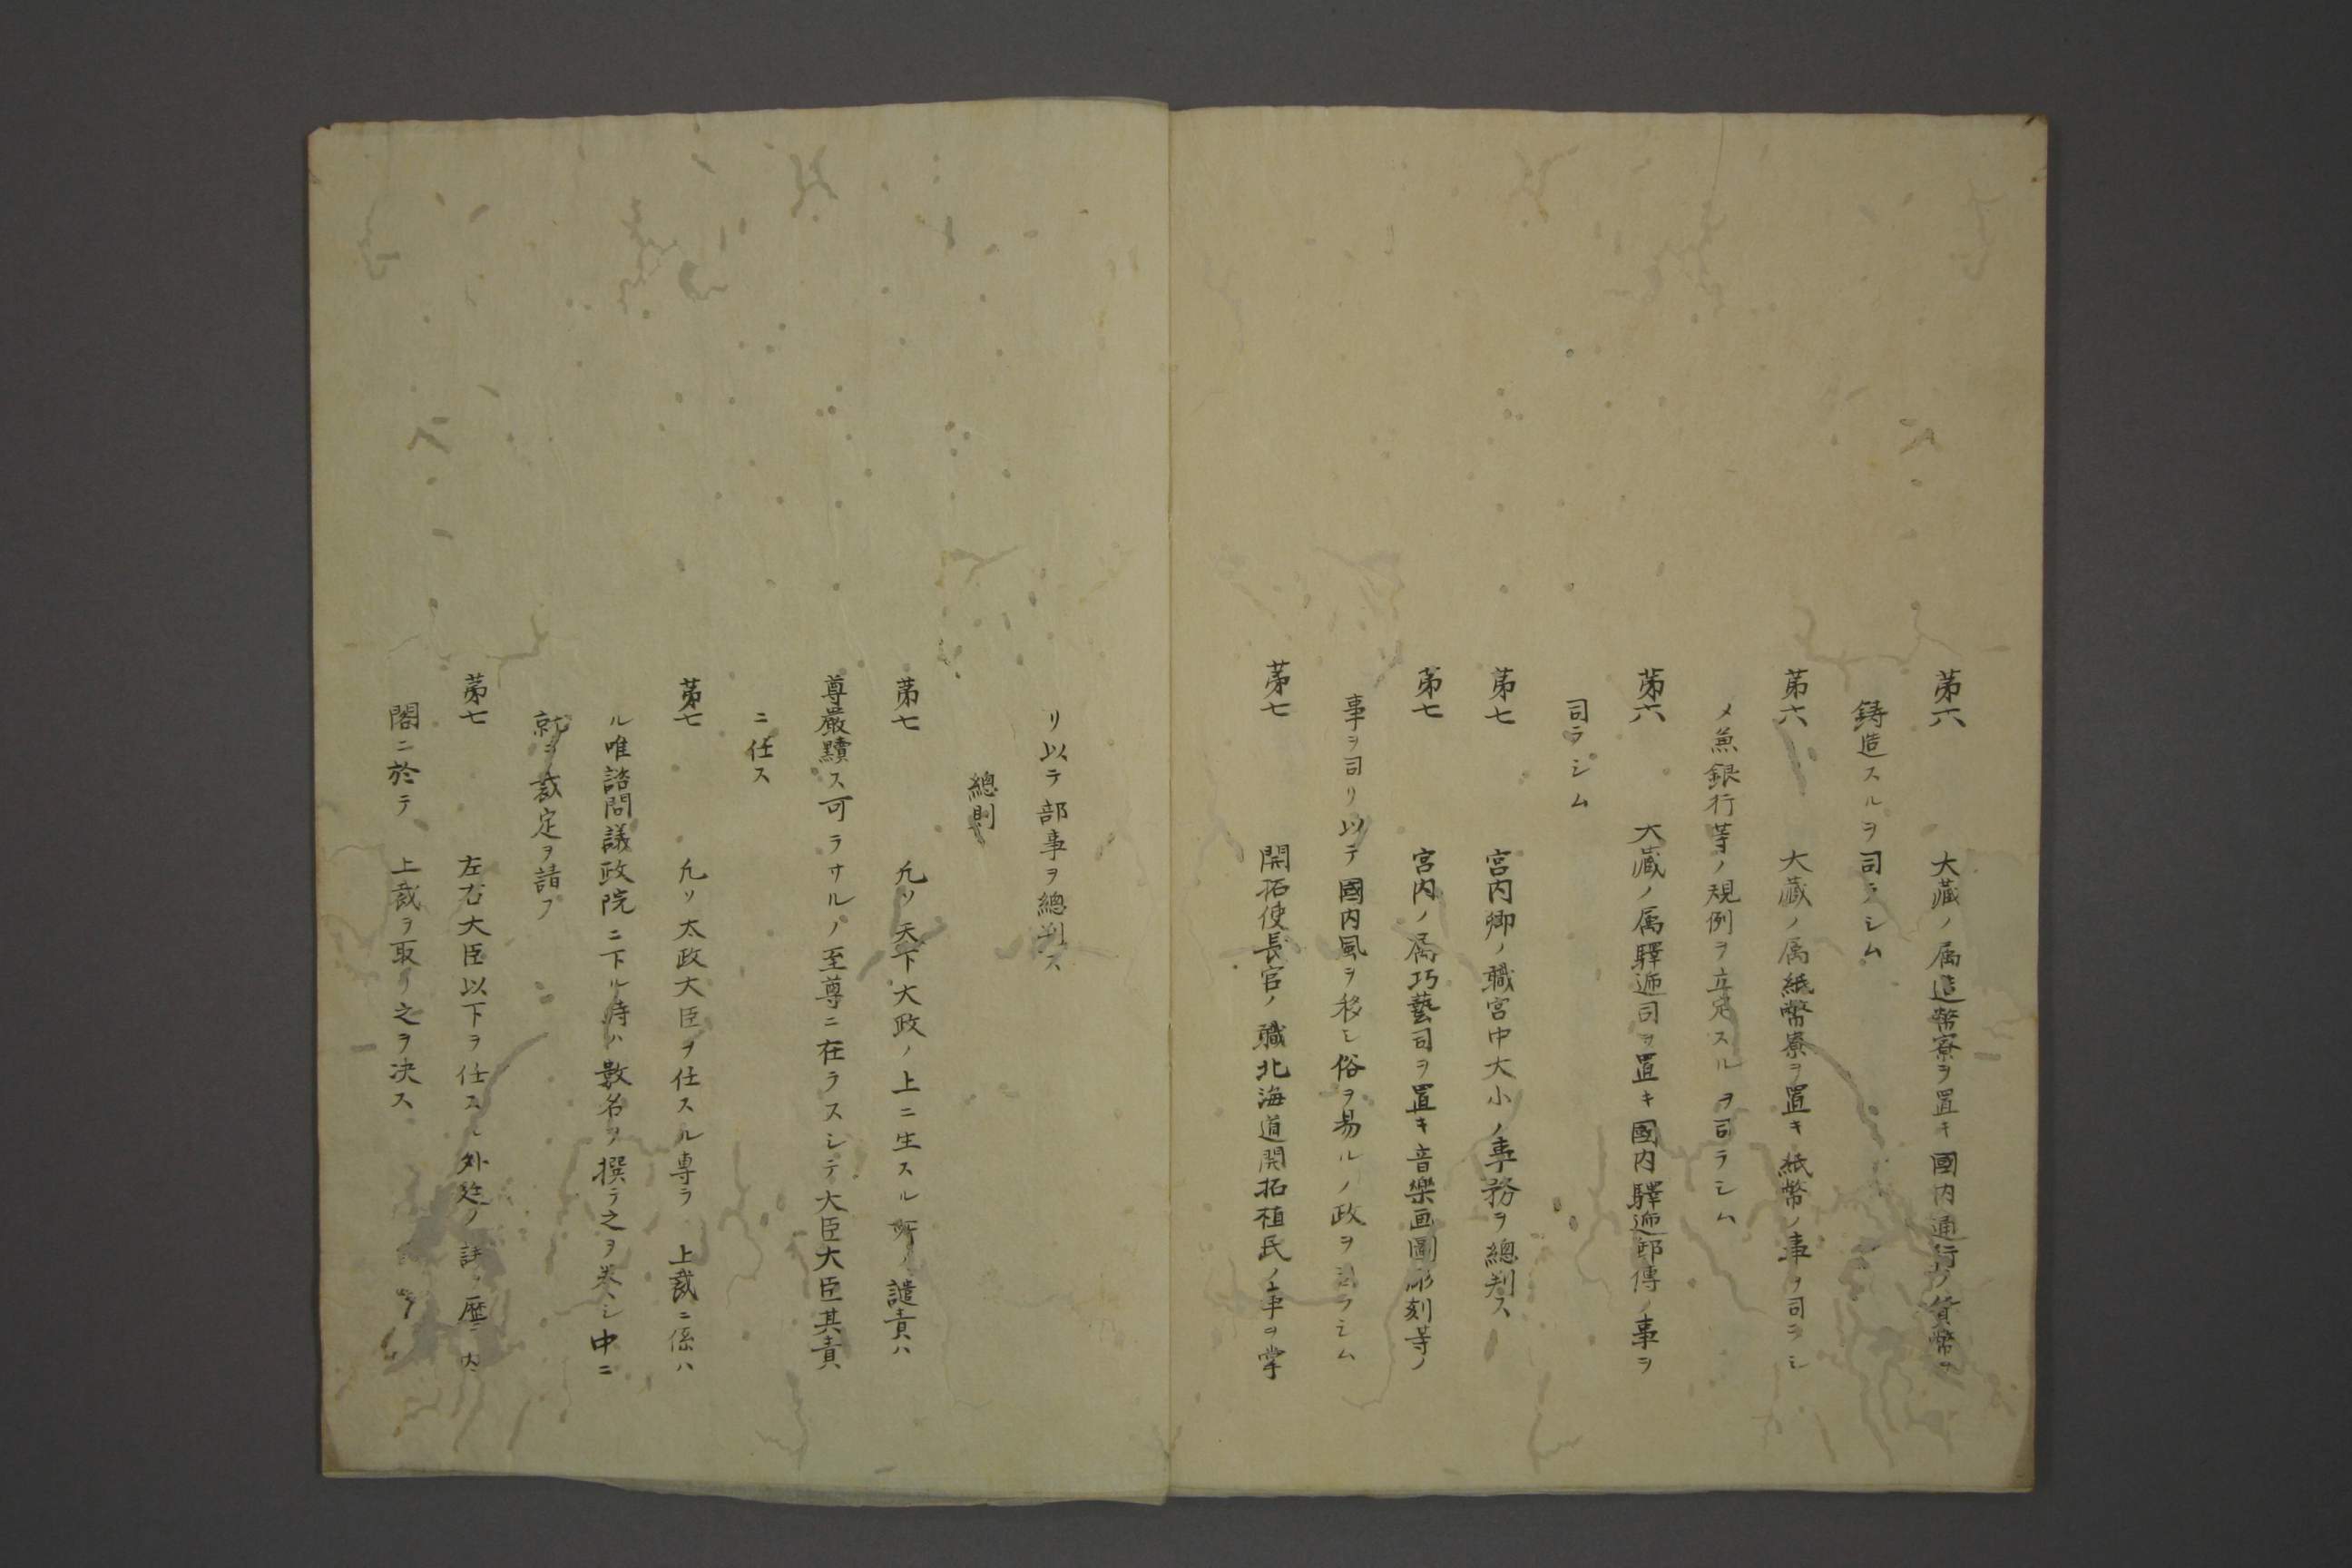 第六　大藏ノ属造幣寮ヲ置キ國内通行ノ貨幣ヲ
鋳造スルヲ司ラシム
第六　大藏ノ属紙幣寮ヲ置キ紙幣ノ事ヲ司ラシ
メ兼銀行等ノ規例ヲ立定スルヲ司ラシム
第六　大藏ノ属驛逓司ヲ置キ國内驛逓郵傳ノ事ヲ
司ラシム
第七　宮内卿ノ職宮中大小ノ事務ヲ總判ス
第七　宮内ノ属巧藝司ヲ置キ音樂画圖彫刻等ノ
事ヲ司リ以テ國内風ヲ移シ俗ヲ易ルノ政ヲ ラシム
第七　開拓使長官ノ職北海道開拓植民ノ事ヲ掌
リ以テ部事ヲ總判ス
總則
第七　凡ソ天下大政ノ上ニ生スル所ノ譴責ハ
尊嚴黷ス可ラサルノ至尊ニ在ラスシテ大臣大臣其責
ニ任ス
第七　凡ソ太政大臣ヲ任スル専ラ上裁ニ係ハ
ル唯諮問議政院ニ下ル時ハ數名ヲ撰ラ之ヲ シ中ニ
就テ裁定ヲ請フ
第七　左右大臣以下ヲ任スル外 ノ ノ歴 内
閣ニ於テ上裁ヲ取リ之ヲ決ス